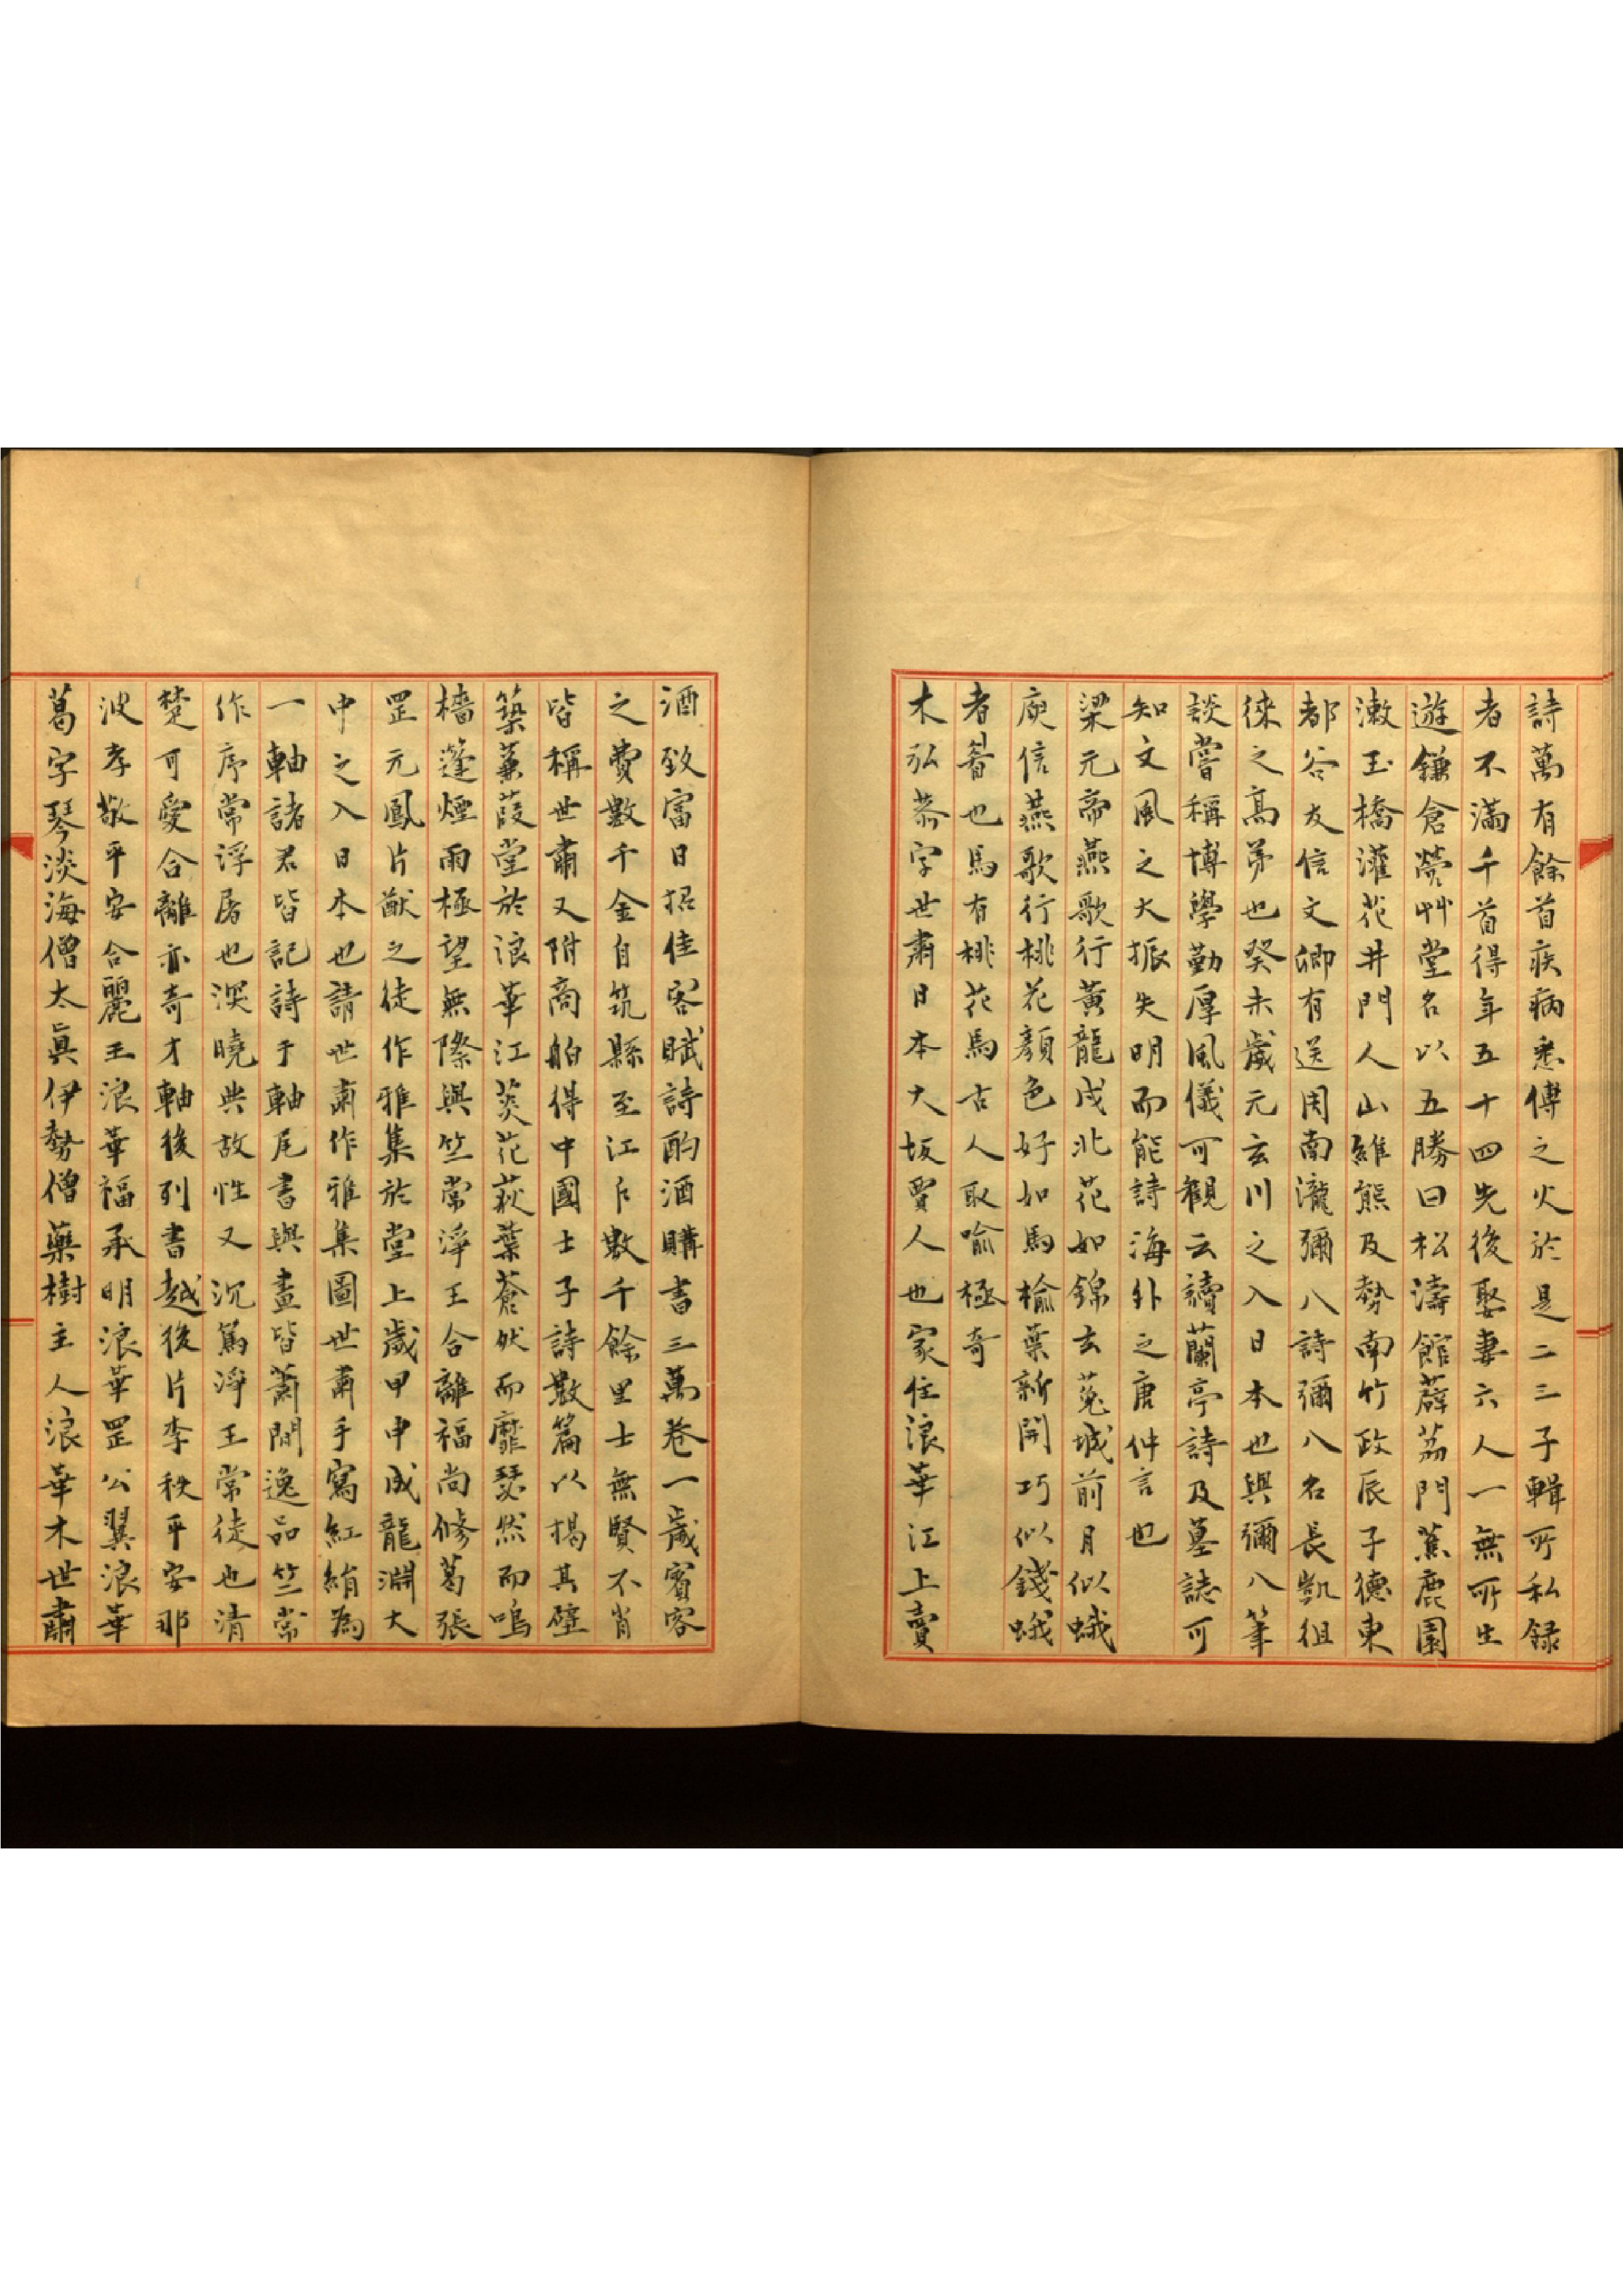 詩萬有餘首疾病悉傳之火於是二三子輯所私録
者不滿千首得年五十四先後娶妻六人一無所生
遊鎌倉縈艸堂名以五勝曰松濤館薜荔門蕉鹿園
漱玉橋灌花井門人山維熊及勢南竹政辰子德東
都谷友信文卿有送周南瀧彌八詩彌八名長凱徂
徠之髙弟也癸未歲元玄川之入日本也與彌八筆
談嘗稱博學勤厚風儀可觀云讀蘭亭詩及墓誌可
知文風之大振失明而能詩海外之唐仲言也
梁元帝燕歌行黃龍戍北花如錦玄菟城前月似蛾
庾信燕歌行桃花顔色好如馬榆葉新開巧似錢蛾
者蚕也馬有桃花馬古人取喻極奇
木弘恭字世肅日本大坂賈人也家住浪華江上賣
酒致富日招佳客賦詩酌酒購書三萬卷一歲賓客
之費數千金自筑縣至江戶數千餘里士無賢不肖
皆稱世肅又附商舶得中國士子詩數篇以揭其壁
築蒹葭堂於浪華江葵花荻葉蒼然而靡瑟然而鳴
檣蓬煙雨極望無際與竺常淨王合離福尚修葛張
罡元鳳片猷之徒作雅集於堂上歲甲申成龍淵大
中之入日本也請世肅作雅集圖世肅手寫紅綃為
一軸諸君皆記詩于軸尾書與畫皆蕭閒逸品竺常
作序常浮屠也淡曉典故性又沉篤淨王常徒也清
楚可愛合離亦奇才軸後列書越後片李秩平安那
波孝敬平安合麗王浪華福承明浪華罡公翼浪華
葛字琴淡海僧太眞伊勢僧藥樹主人浪華木世肅